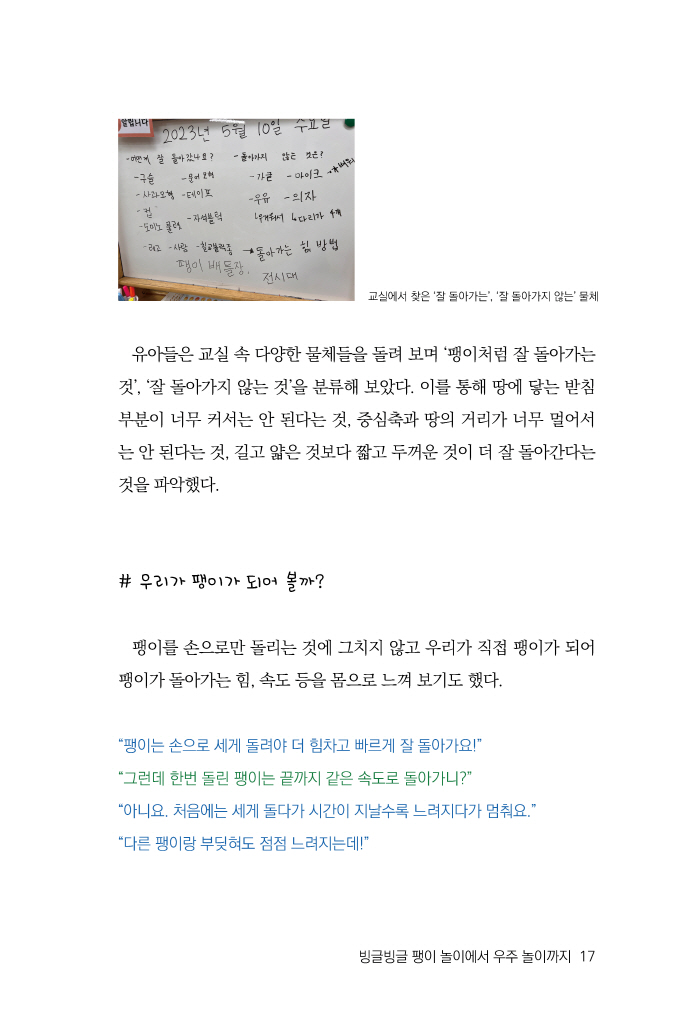 알립니다
2023년 5월 10일 수요일
-어떤게 잘 돌아갔나요? -돌아가지 않는 것은?
-구슬 -문어모형 -가글 -마이크
-사과모형 -테이프 -우유 -의자
-컵 -자석블럭 ↳무거워서 ↳다리가 4개
-도미노 블럭
-레고 -사람 -돌아가는 힘, 방법
팽이 배틀장, 전시대
교실에서 찾은 ‘잘 돌아가는’, ‘잘 돌아가지 않는’ 물체
유아들은 교실 속 다양한 물체들을 돌려 보며 ‘팽이처럼 잘 돌아가는
것’, ‘잘 돌아가지 않는 것’을 분류해 보았다. 이를 통해 땅에 닿는 받침
부분이 너무 커서는 안 된다는 것, 중심축과 땅의 거리가 너무 멀어서
는 안 된다는 것, 길고 얇은 것보다 짧고 두꺼운 것이 더 잘 돌아간다는
것을 파악했다.
# 우리가 팽이가 되어 볼까?
팽이를 손으로만 돌리는 것에 그치지 않고 우리가 직접 팽이가 되어
팽이가 돌아가는 힘, 속도 등을 몸으로 느껴 보기도 했다.
“팽이는 손으로 세게 돌려야 더 힘차고 빠르게 잘 돌아가요!”
“그런데 한번 돌린 팽이는 끝까지 같은 속도로 돌아가니?”
“아니요. 처음에는 세게 돌다가 시간이 지날수록 느려지다가 멈춰요.”
“다른 팽이랑 부딪혀도 점점 느려지는데!”
빙글빙글 팽이 놀이에서 우주 놀이까지 17